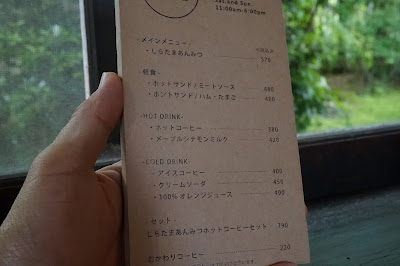 Sat.and Sun.
11:00am-4:00pm
-メインメニュー-
・しらたまあんみつ 570
-軽食-
・ホットサンド/ミートソース 480
・ホットサンド/ハム・たまご 480
-HOT DRINK-
・ホットコーヒー 380
・メープルシナモンミルク 420
-COLD DRINK-
・アイスコーヒー 400
・クリームソーダ 450
・100%オレンジジュース 400
-セット-
しらたまあんみつホットコーヒーセット 790
おかわりコーヒー 220